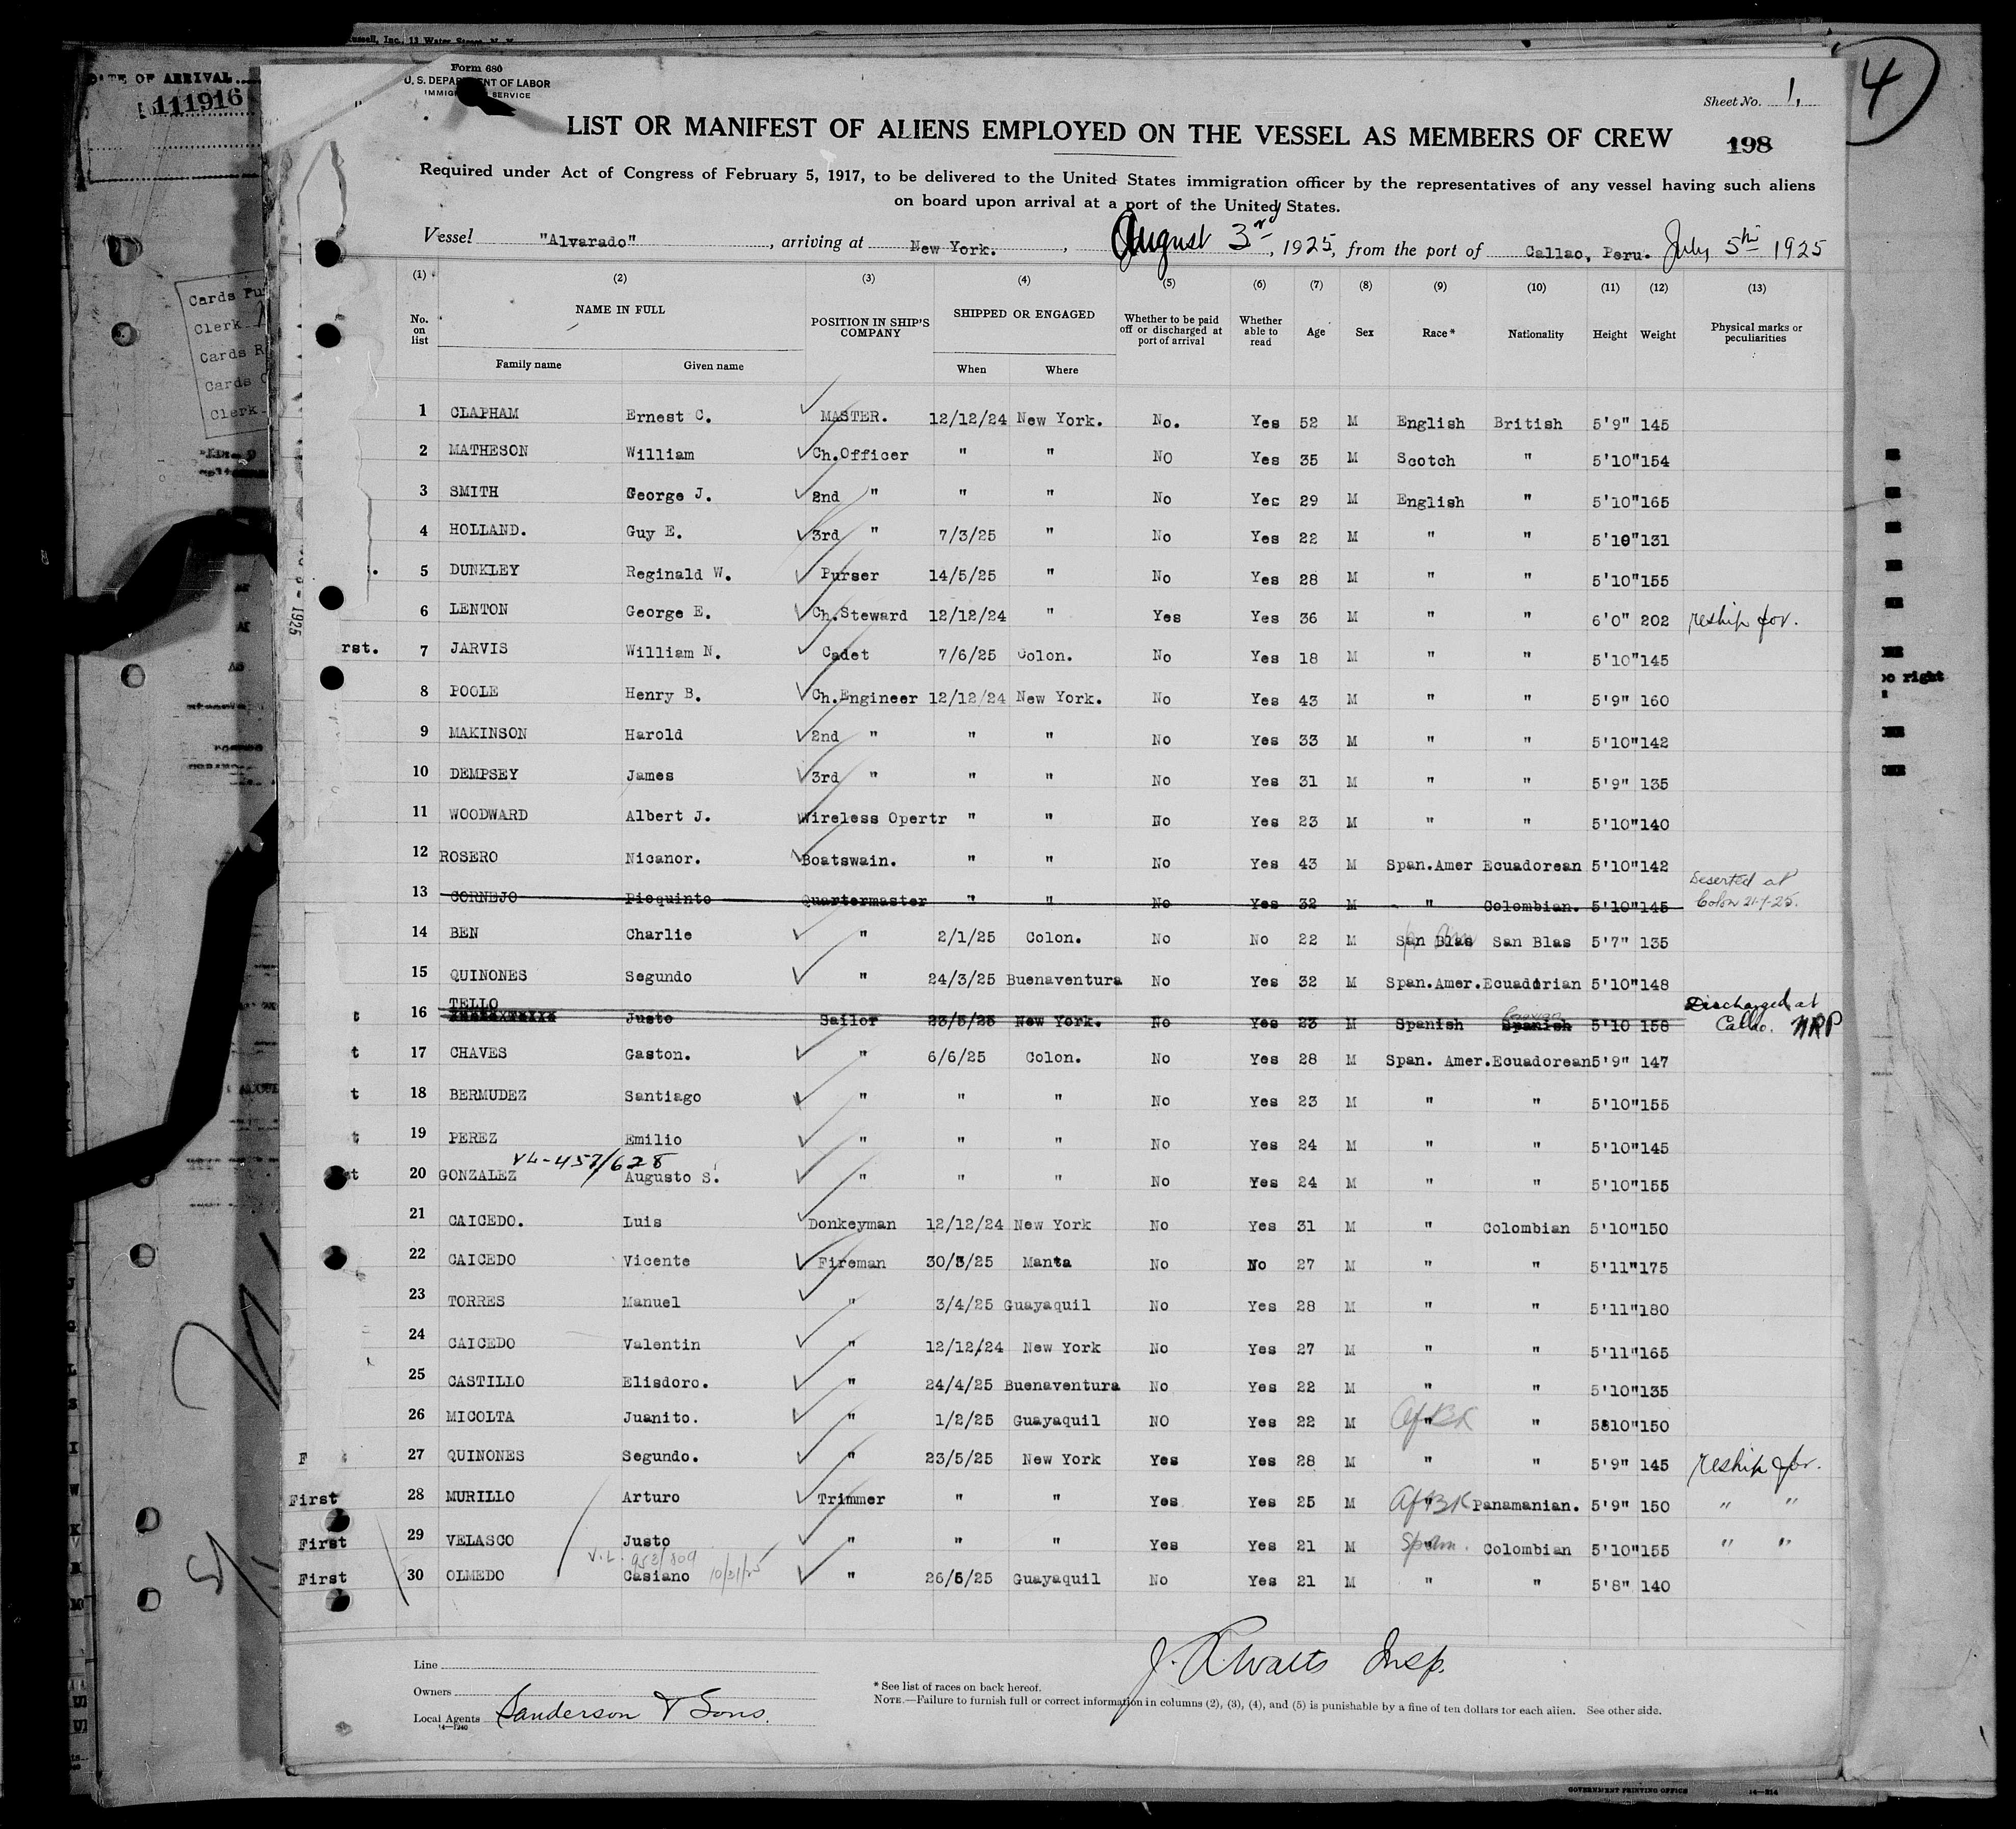 DATE OF ARRIVAL
111916
Form 680
U. S. DEPARTMENT OF LABOR
IMMIGRATION SERVICE
Sheet No. 1.
4
LIST OR MANIFEST OF ALIENS EMPLOYED ON THE VESSEL AS MEMBERS OF CREW
198
Required under Act of Congress of February 5, 1917, to be delivered to the United States immigration officer by the representatives of any vessel having such aliens
on board upon arrival at a port of the United States.
Vessel "Alvarado", arriving at New York., August 3rd, 1925, from the port of Callao, Peru. July 5th 1925
(1) (2) (3) (4) (5) (6) (7) (8) (9) (10) (11) (12) (13)
No. on list NAME IN FULL POSITION IN SHIP'S COMPANY SHIPPED OR ENGAGED Whether to be paid off or discharged at port of arrival Whether able to read Age Sex Race* Nationality Height Weight Physical marks or peculiarities
Family name Given name When Where
1 CLAPHAM Ernest C. MASTER. 12/12/24 New York. No. Yes 52 M English British 5'9" 145
2 MATHESON William Ch.Officer " " NO Yes 35 M Scotch " 5'10" 154
3 SMITH George J. 2nd " " " No Yes 29 M English " 5'10" 165
4 HOLLAND. Guy E. 3rd " 7/3/25 " No Yes 22 M " " 5'10" 131
5 DUNKLEY Reginald W. Purser 14/5/25 " No Yes 28 M " " 5'10" 155
6 LENTON George E. Ch.Steward 12/12/24 " Yes Yes 36 M " " 6'0" 202 reship for.
rst. 7 JARVIS William N. Cadet 7/6/25 Colon. No Yes 18 M " " 5'10" 145
8 POOLE Henry B. Ch.Engineer 12/12/24 New York. No Yes 43 M " " 5'9" 160
9 MAKINSON Harold 2nd " " " No Yes 33 M " " 5'10" 142
10 DEMPSEY James 3rd " " " No Yes 31 M " " 5'9" 135
11 WOODWARD Albert J. Wireless Opertr " " No Yes 23 M " " 5'10" 140
12 ROSERO Nicanor. Boatswain. " " No Yes 43 M Span.Amer Ecuadorean 5'10" 142
13 CORNEJO Pioquinto Quartermaster " " No Yes 32 M " Colombian. 5'10" 145 Deserted at Colon 21-7-25.
14 BEN Charlie " 2/1/25 Colon. No No 22 M San Blas San Blas 5'7" 135
15 QUINONES Segundo " 24/3/25 Buenaventura No Yes 32 M Span.Amer. Ecuadorian 5'10" 148
t 16 TELLO Justo Sailor 23/5/25 New York. No Yes 23 M Spanish Spanish Peruvian 5'10 158 Discharged at Callao. NRP
t 17 CHAVES Gaston. " 6/6/25 Colon. No Yes 28 M Span. Amer. Ecuadorean 5'9" 147
t 18 BERMUDEZ Santiago " " " No Yes 23 M " " 5'10" 155
t 19 PEREZ Emilio " " " No Yes 24 M " " 5'10" 145
VL-457/628
st 20 GONZALEZ Augusto S. " " " No Yes 24 M " " 5'10" 155
21 CAICEDO. Luis Donkeyman 12/12/24 New York No Yes 31 M " Colombian 5'10" 150
22 CAICEDO Vicente Fireman 30/5/25 Manta No No 27 M " " 5'11" 175
23 TORRES Manuel " 3/4/25 Guayaquil No Yes 28 M " " 5'11" 180
24 CAICEDO Valentin " 12/12/24 New York No Yes 27 M " " 5'11" 165
25 CASTILLO Elisdoro. " 24/4/25 Buenaventura No Yes 22 M " " 5'10" 135
26 MICOLTA Juanito. " 1/2/25 Guayaquil NO Yes 22 M " Af BK " 5810" 150
F 27 QUINONES Segundo. " 23/5/25 New York Yes Yes 28 M " " 5'9" 145 reship for.
First 28 MURILLO Arturo Trimmer " " Yes Yes 25 M " Af BK Panamanian. 5'9" 150 " "
First 29 VELASCO Justo " " " Yes Yes 21 M " Sp Am. Colombian 5'10" 155 " "
V.L. 952/809 10/21/25
First 30 OLMEDO Casiano " 26/5/25 Guayaquil No Yes 21 M " " 5'8" 140
Line
Owners
Local Agents Sanderson & Sons.
14—1240
J. R. Watts Insp.
* See list of races on back hereof.
NOTE.—Failure to furnish full or correct information in columns (2), (3), (4), and (5) is punishable by a fine of ten dollars for each alien. See other side.
GOVERNMENT PRINTING OFFICE
Cards Pu
Clerk
Cards R
Cards C
Clerk
1925
right